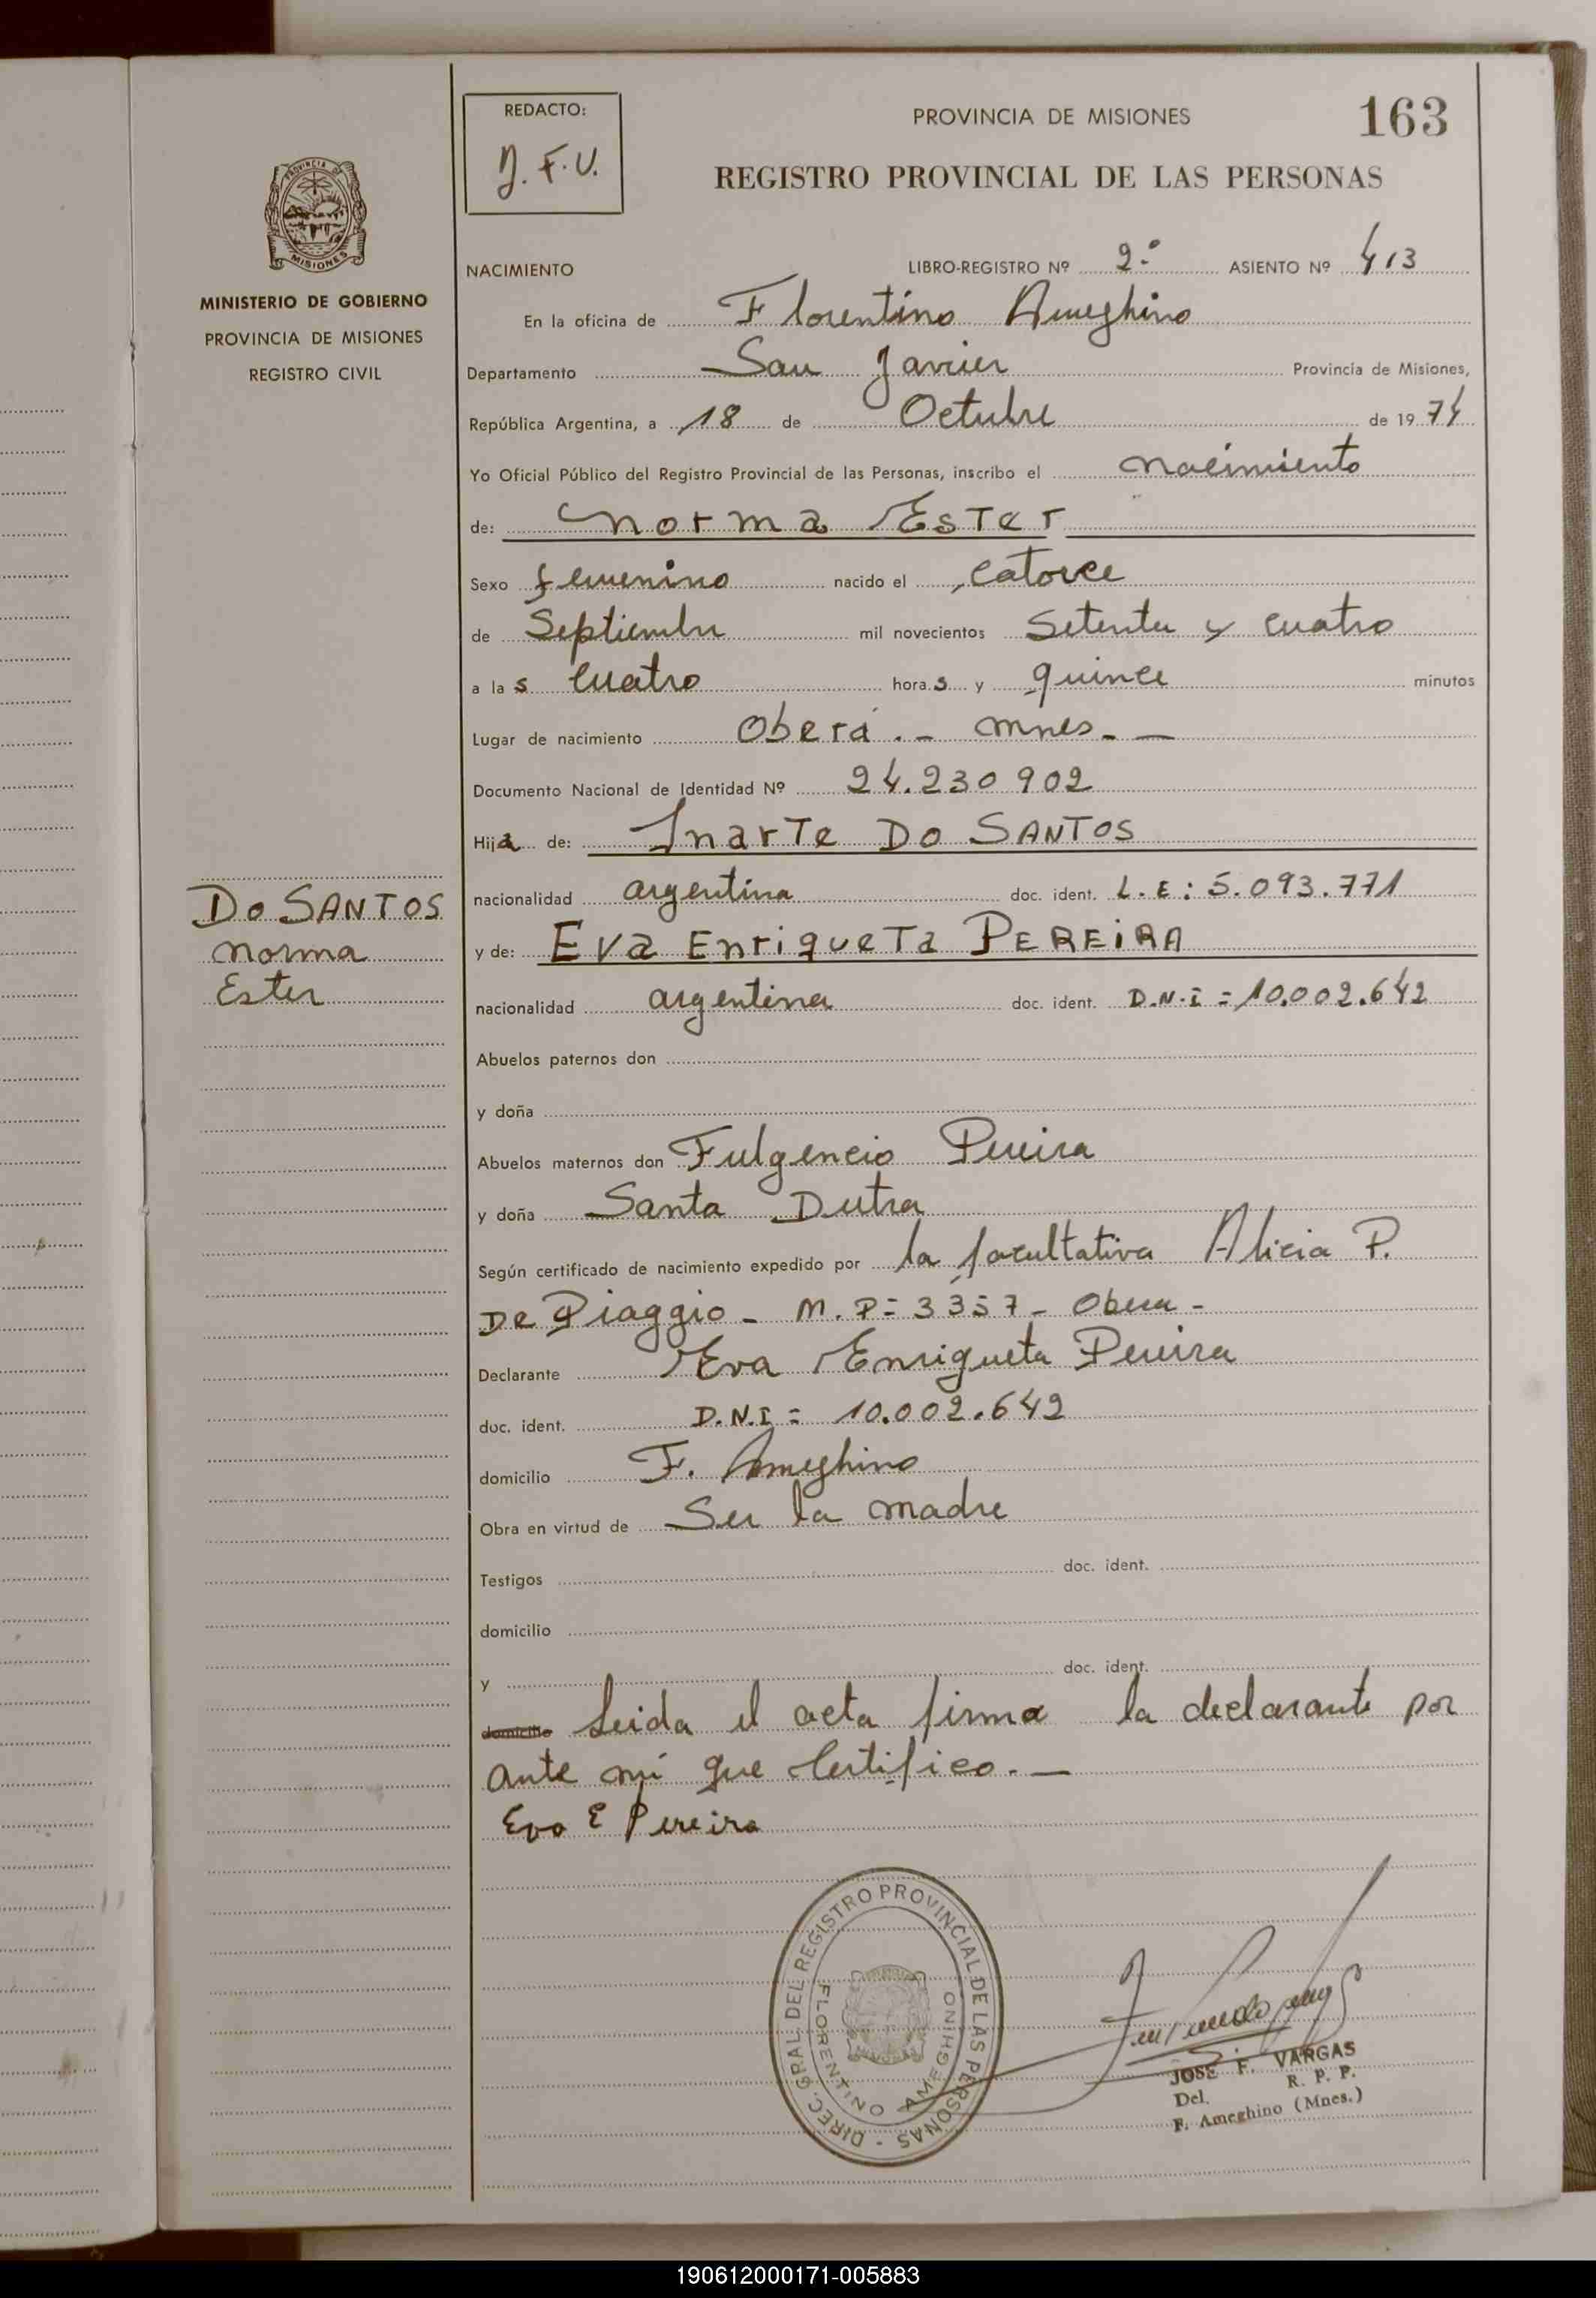 REDACTO:
J. F. V.
PROVINCIA DE MISIONES
163
REGISTRO PROVINCIAL DE LAS PERSONAS
PROVINCIA DE
MISIONES
MINISTERIO DE GOBIERNO
PROVINCIA DE MISIONES
REGISTRO CIVIL
NACIMIENTO LIBRO-REGISTRO Nº 2º ASIENTO Nº 413
En la oficina de Florentino Ameghino
Departamento San Javier Provincia de Misiones,
República Argentina, a 18 de Octubre de 1974
Yo Oficial Público del Registro Provincial de las Personas, inscribo el nacimiento
de: Norma Ester
Sexo femenino nacido el catorce
de Septiembre mil novecientos Setenta y cuatro
a las cuatro horas y quince minutos
Lugar de nacimiento Oberá.- Mnes.-
Documento Nacional de Identidad Nº 24.230902
Hija de: Inarte DO SANTOS
nacionalidad argentina doc. ident. L.E: 5.093.771
y de: Eva Enriqueta PEREIRA
nacionalidad argentina doc. ident. D.N.I = 10.002.642
DO SANTOS
Norma
Ester
Abuelos paternos don
y doña
Abuelos maternos don Fulgencio Pereira
y doña Santa Dutra
Según certificado de nacimiento expedido por la facultativa Alicia P.
De Piaggio - M. P= 3357 - Obera -
Declarante Eva Enriqueta Pereira
doc. ident. D.N.I = 10.002.642
domicilio F. Ameghino
Obra en virtud de Ser la madre
Testigos doc. ident.
domicilio
y doc. ident.
domicilio Leida el acta firma la declarante por
ante mí que certifico.-
Eva E Pereira
DIREC. GRAL. DEL REGISTRO PROVINCIAL DE LAS PERSONAS -
FLORENTINO AMEGHINO
JOSE F. VARGAS
Del. R. P. P.
F. Ameghino (Mnes.)
190612000171-005883